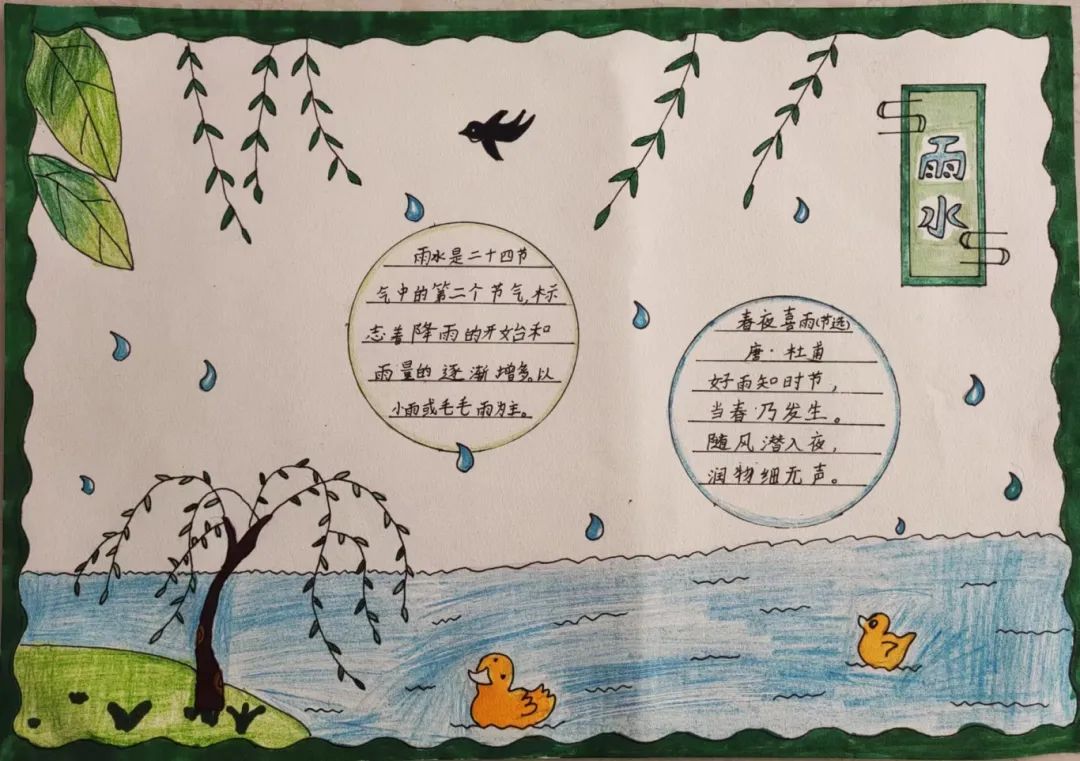 雨水
雨水是二十四节
气中的第二个节气,标
志着降雨的开始和
雨量的逐渐增多,以
小雨或毛毛雨为主。
春夜喜雨(节选)
唐·杜甫
好雨知时节，
当春乃发生。
随风潜入夜，
润物细无声。